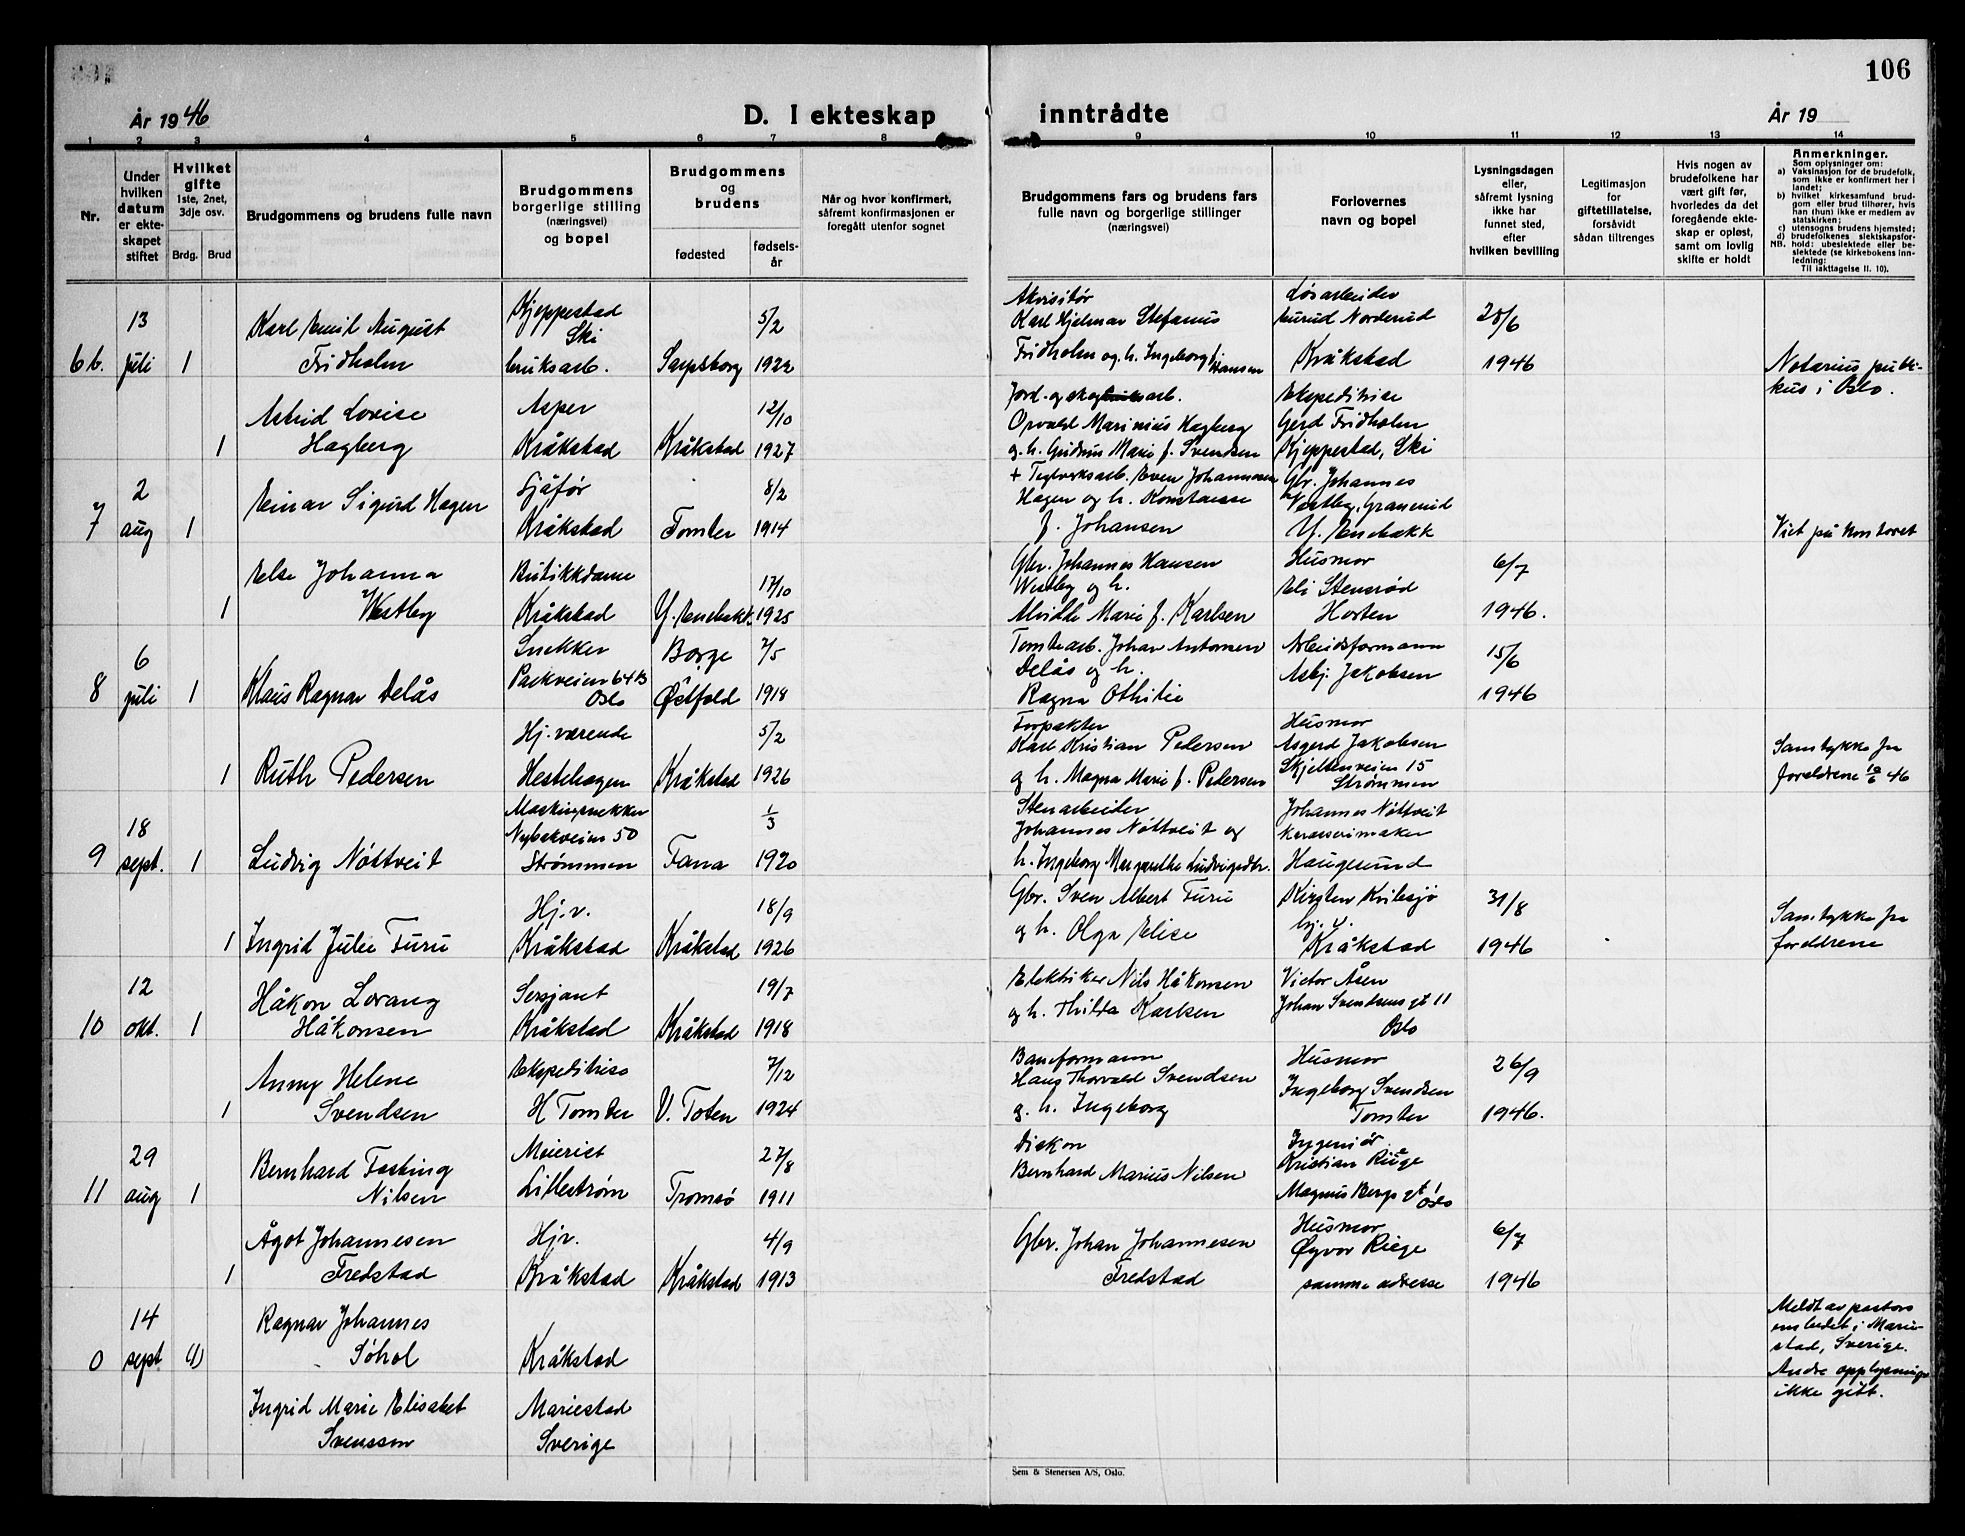 106
År 1946
D. I ekteskap inntrådte
År 19
1 2 3 4 5 6 7 8 9 10 11 12 13 14
Nr.
Under hvilken datum er ekteskapet stiftet
Hvilket gifte 1ste, 2net, 3dje osv.
Brdg. Brud
Brudgommens og brudens fulle navn
Brudgommens borgerlige stilling (næringsvei) og bopel
Brudgommens og brudens
fødested
fødselsår
Når og hvor konfirmert, såfremt konfirmasjonen er foregått utenfor sognet
Brudgommens fars og brudens fars fulle navn og borgerlige stillinger (næringsvei)
Forlovernes navn og bopel
Lysningsdagen eller, såfremt lysning ikke har funnet sted, efter hvilken bevilling
Legitimasjon for giftetillatelse, forsåvidt sådan tiltrenges
Hvis nogen av brudefolkene har vært gift før, hvorledes da det foregående ekteskap er opløst, samt om lovlig skifte er holdt
Anmerkninger.
Som oplysninger om:
a) Vaksinasjon for de brudefolk, som ikke er konfirmert her i landet;
b) hvilket kirkesamfund brudgom eller brud tilhører, hvis han (hun) ikke er medlem av statskirken;
c) utensogns brudens hjemsted;
d) brudefolkenes slektskapsforhold: ubeslektede eller beslektede (se kirkebokens innledning:
NB.
Til iakttagelse II. 10).
6b. 13 juli 1
Karl Emil August
Fridholm
Kjeppestad
Ski
bruksarb.
Sarpsborg
5/2
1922
Akvisitør
Karl Hjelmar Stefanus
Fridholm og h. Ingeborg f. Hansen
Løsarbeider
Norderud
Kråkstad
28/6
1946
Notarius publikus i Oslo.
1
Astrid Lovise
Hagberg
Asper
Kråkstad
Kråkstad
12/10
1927
Jord- og skogbruksarb.
Orvald Marinius Hagberg
og h. Gudrun Marie f. Svendsen
Ekspeditrise
Gerd Fridholm
Kjeppestad, Ski
7 2 aug 1
Einar Sigurd Hagen
Sjåfør
Kråkstad
Tomter
8/2
1914
+ Teglverksarb. Even Johannesen
Hagen og h. Konstanse
f. Johansen
Gbr. Johannes
Vestby, Granerud
Y. Enebakk
Viet på kontoret
1
Else Johanna
Westby
Butikkdame
Kråkstad
Y. Enebakk
17/10
1925
Gbr. Johannes Hansen
Westby og h.
Alvilde Marie f. Karlsen
Husmor
Eli Stensrød
Horten
6/7
1946.
8 6 juli 1
Klaus Ragnar Delås
Snekker
Parkveien 64 B
Oslo
Borge
Østfold
7/5
1918
Tomtearb. Johan Antonsen
Delås og h.
Ragna Othilie
Arbeidsformann
Asbj. Jakobsen
15/6
1946
1
Ruth Pedersen
Hj. værende
Hestehagen
Kråkstad
5/2
1926
Forpakter
Karl Kristian Pedersen
og h. Magna Marie f. Pedersen
Husmor
Asgerd Jakobsen
Skjettenveien 15
Strømmen
Samtykke fra
foreldrene 10/6 46
9 18 sept. 1
Ludvig Nøttveit
Maskinsnekker
Nybakveien 50
Strømmen
Fana
1/3
1920
Stenarbeider
Johannes Nøttveit og
h. Ingeborg Margarethe Ludvigsdtr.
Johannes Nøttveit
karosserimaker
Haugesund
1
Ingrid Julie Furu
Hj.v.
Kråkstad
Kråkstad
18/9
1926
Gbr. Sven Albert Furu
og h. Olga Elise
Kirsten Kvilesjø
hj. v.
Kråkstad
31/8
1946
Samtykke fra
foreldrene
10 12 okt. 1
Håkon Lorang
Håkonsen
Sersjant
Kråkstad
Kråkstad
19/7
1918
Elektriker Nils Håkonsen
og h. Thilda Karlsen
Victor Åsen
Johan Svendsens gt 11
Oslo
1
Anny Helene
Svendsen
Ekspeditrise
H Tomter
V. Toten
7/12
1924
Baneformann
Hans Thorvald Svendsen
og h. Ingeborg
Husmor
Ingeborg Svendsen
Tomter
26/9
1946.
11 29 aug 1
Bernhard Fasting
Nilsen
Meierist
Lillestrøm
Tromsø
27/8
1911
Diakon
Bernhard Marius Nilsen
Ingeniør
Kristian Riege
Magnus Bergs gt 1
Oslo
1
Ågot Johannesen
Fredstad
Hjv.
Kråkstad
Kråkstad
4/9
1913
Gbr. Johan Johannesen
Fredstad
Husmor
Øyvor Riege
samme adresse
6/7
1946
0 14 sept (1)
Ragnar Johannes
Søhol
Kråkstad
Meldt av pastors
embedet i Marie-
stad, Sverige.
Andre opplysninger
ikke gitt.
Ingrid Marie Elisabet
Svensson
Mariestad
Sverige
Sem & Stenersen A/S, Oslo.